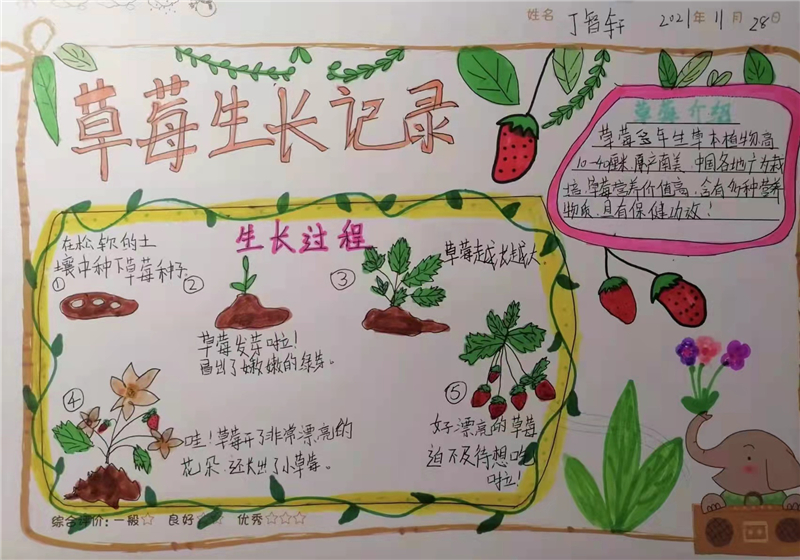 姓名 丁智轩 2021年11月28日
草莓生长记录
草莓介绍
草莓多年生草本植物高
10-40厘米,原产南美,中国各地广为栽
培,草莓营养价值高,含有多种营养
物质,具有保健功效!
生长过程
在松软的土
壤中种下草莓种子
①
②
草莓发芽啦!
冒出了嫩嫩的绿芽。
③
草莓越长越大.
④
哇!草莓开了非常漂亮的
花朵.还长出了小草莓。
⑤
好漂亮的草莓
迫不及待想吃
啦!
综合评价:一般☆ 良好☆☆ 优秀☆☆☆